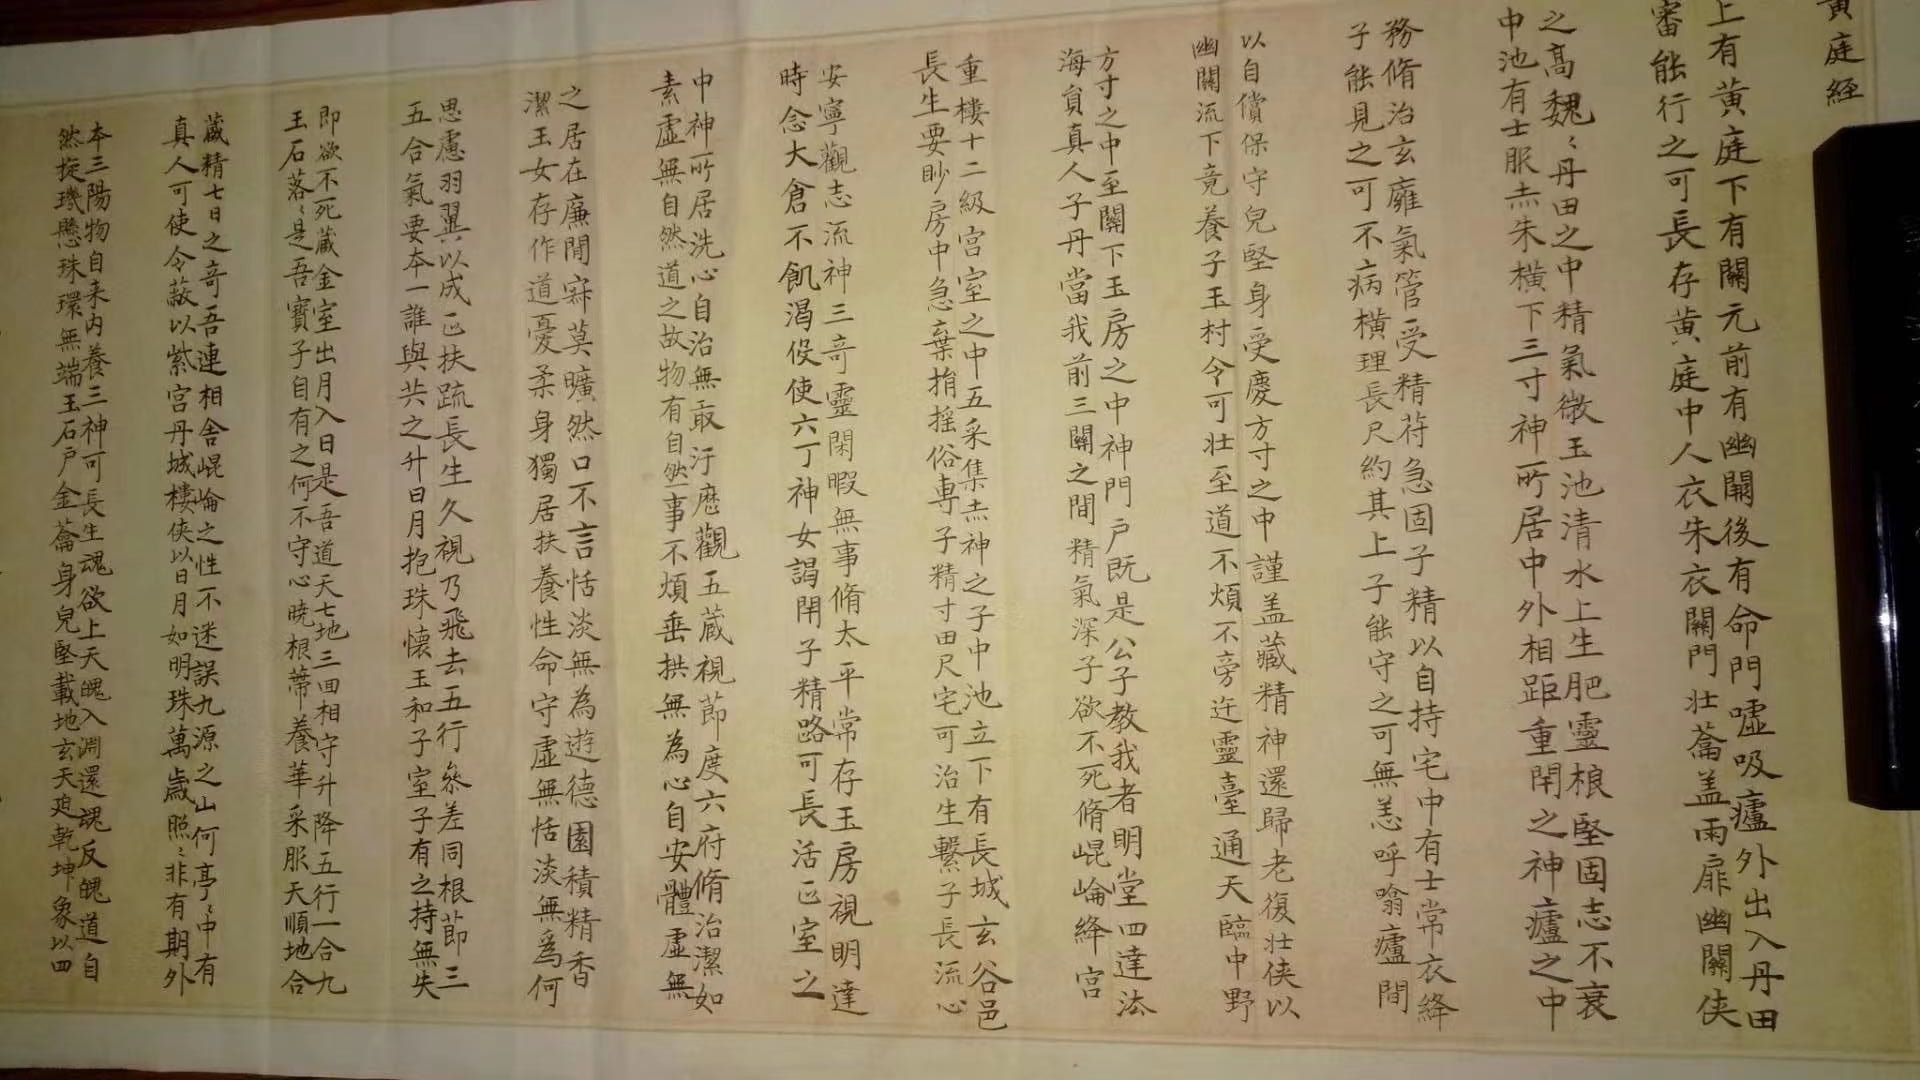 黄庭經
上有黄庭下有關元前有幽闕後有命門噓吸廬外出入丹田
審能行之可長存黄庭中人衣朱衣關門壯蘥盖兩扉幽闕俠
之高魏〻丹田之中精氣微玉池清水上生肥靈根堅固志不衰
中池有士服赤朱横下三寸神所居中外相距重閇之神廬之中
務脩治玄廱氣管受精符急固子精以自持宅中有士常衣絳
子能見之可不病横理長尺約其上子能守之可無恙呼噏廬間
以自償保守皃堅身受慶方寸之中謹盖藏精神還歸老復壯俠以
幽闕流下竟養子玉村令可壯至道不煩不旁迕靈臺通天臨中野
方寸之中至關下玉房之中神門户既是公子教我者明堂四達法
海員真人子丹當我前三關之間精氣深子欲不死脩崐崘絳宫
重樓十二級宫室之中五采集赤神之子中池立下有長城玄谷邑
長生要眇房中急棄捐揺俗専子精寸田尺宅可治生繫子長流心
安寧觀志流神三竒靈閑暇無事脩太平常存玉房視明達
時念大倉不飢渴伇使六丁神女謁閇子精路可長活正室之
中神所居洗心自治無敢汙歷觀五藏視莭度六府脩治潔如
素虚無自然道之故物有自然事不煩垂拱無為心自安體虚無
之居在廉閒寂莫曠然口不言恬淡無為遊德園積精香
潔玉女存作道憂柔身獨居扶養性命守虚無恬淡無為何
思慮羽翼以成正扶疏長生久視乃飛去五行叅差同根莭三
五合氣要本一誰與共之升日月抱珠懷玉和子室子有之持無失
即欲不死藏金室出月入日是吾道天七地三回相守升降五行一合九
玉石落〻是吾寳子自有之何不守心曉根蔕養華采服天順地合
藏精七日之竒吾連相舎崐崘之性不迷誤九源之山何亭〻中有
真人可使令蔽以紫宫丹城樓俠以日月如明珠萬歳照〻非有期外
本三陽物自来内養三神可長生魂欲上天魄入淵還魂反魄道自
然㨁璣懸珠環無端玉石户金蘥身皃堅載地玄天迫乾坤象以四